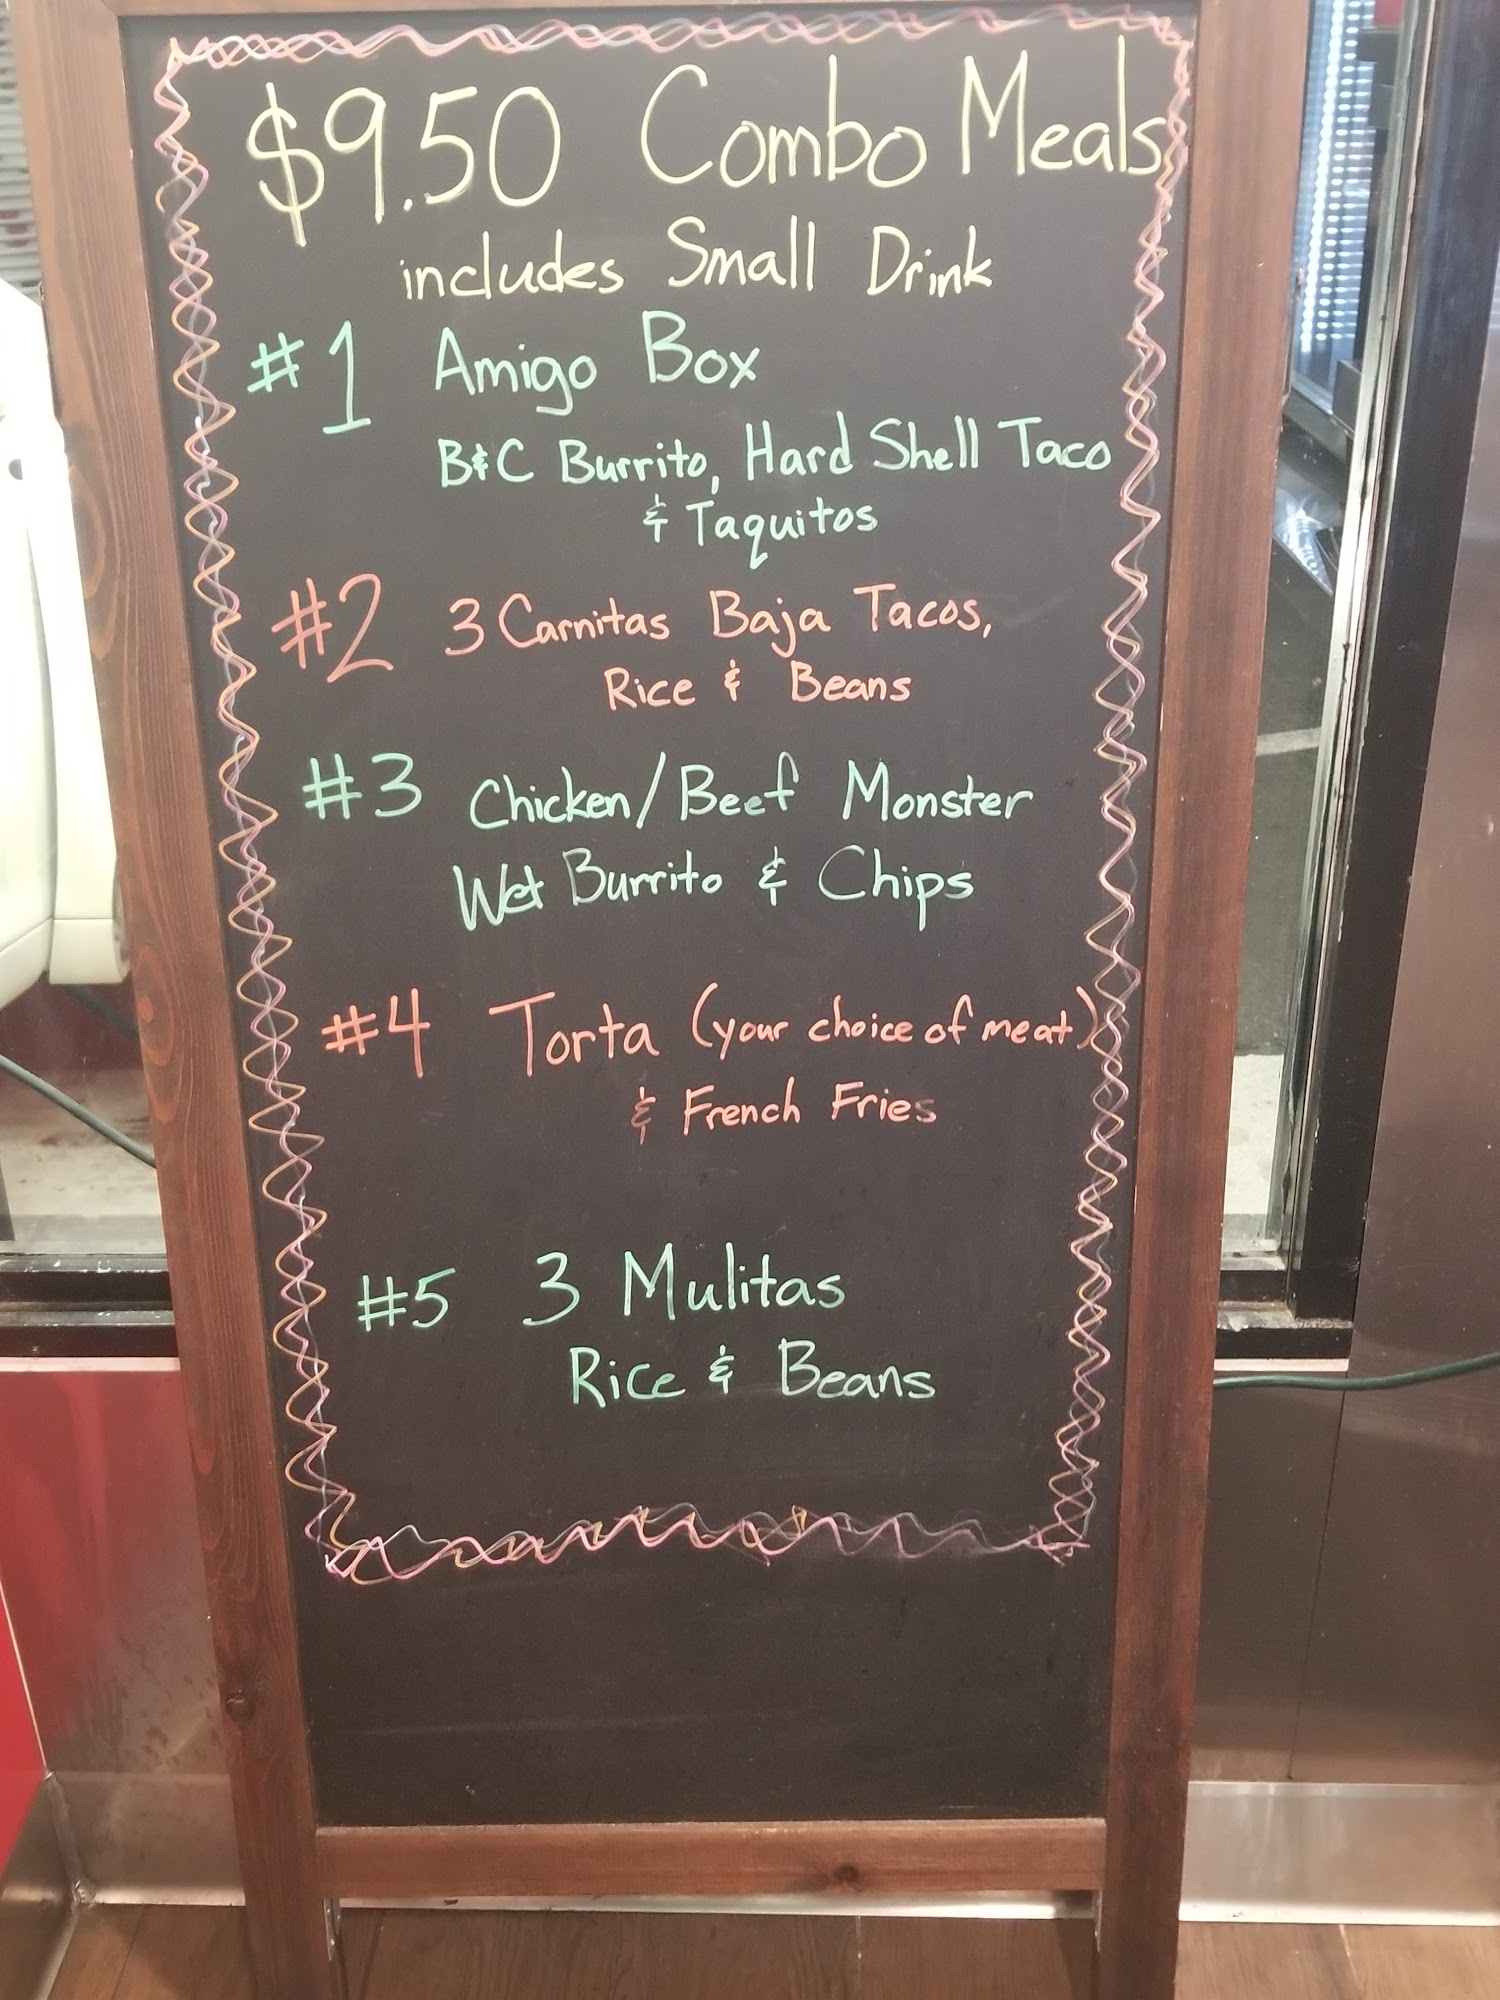 $9.50 Combo Meals
includes Small Drink
#1 Amigo Box
B&C Burrito, Hard Shell Taco
& Taquitos
#2 3 Carnitas Baja Tacos,
Rice & Beans
#3 Chicken/Beef Monster
Wet Burrito & Chips
#4 Torta (your choice of meat)
& French Fries
#5 3 Mulitas
Rice & Beans